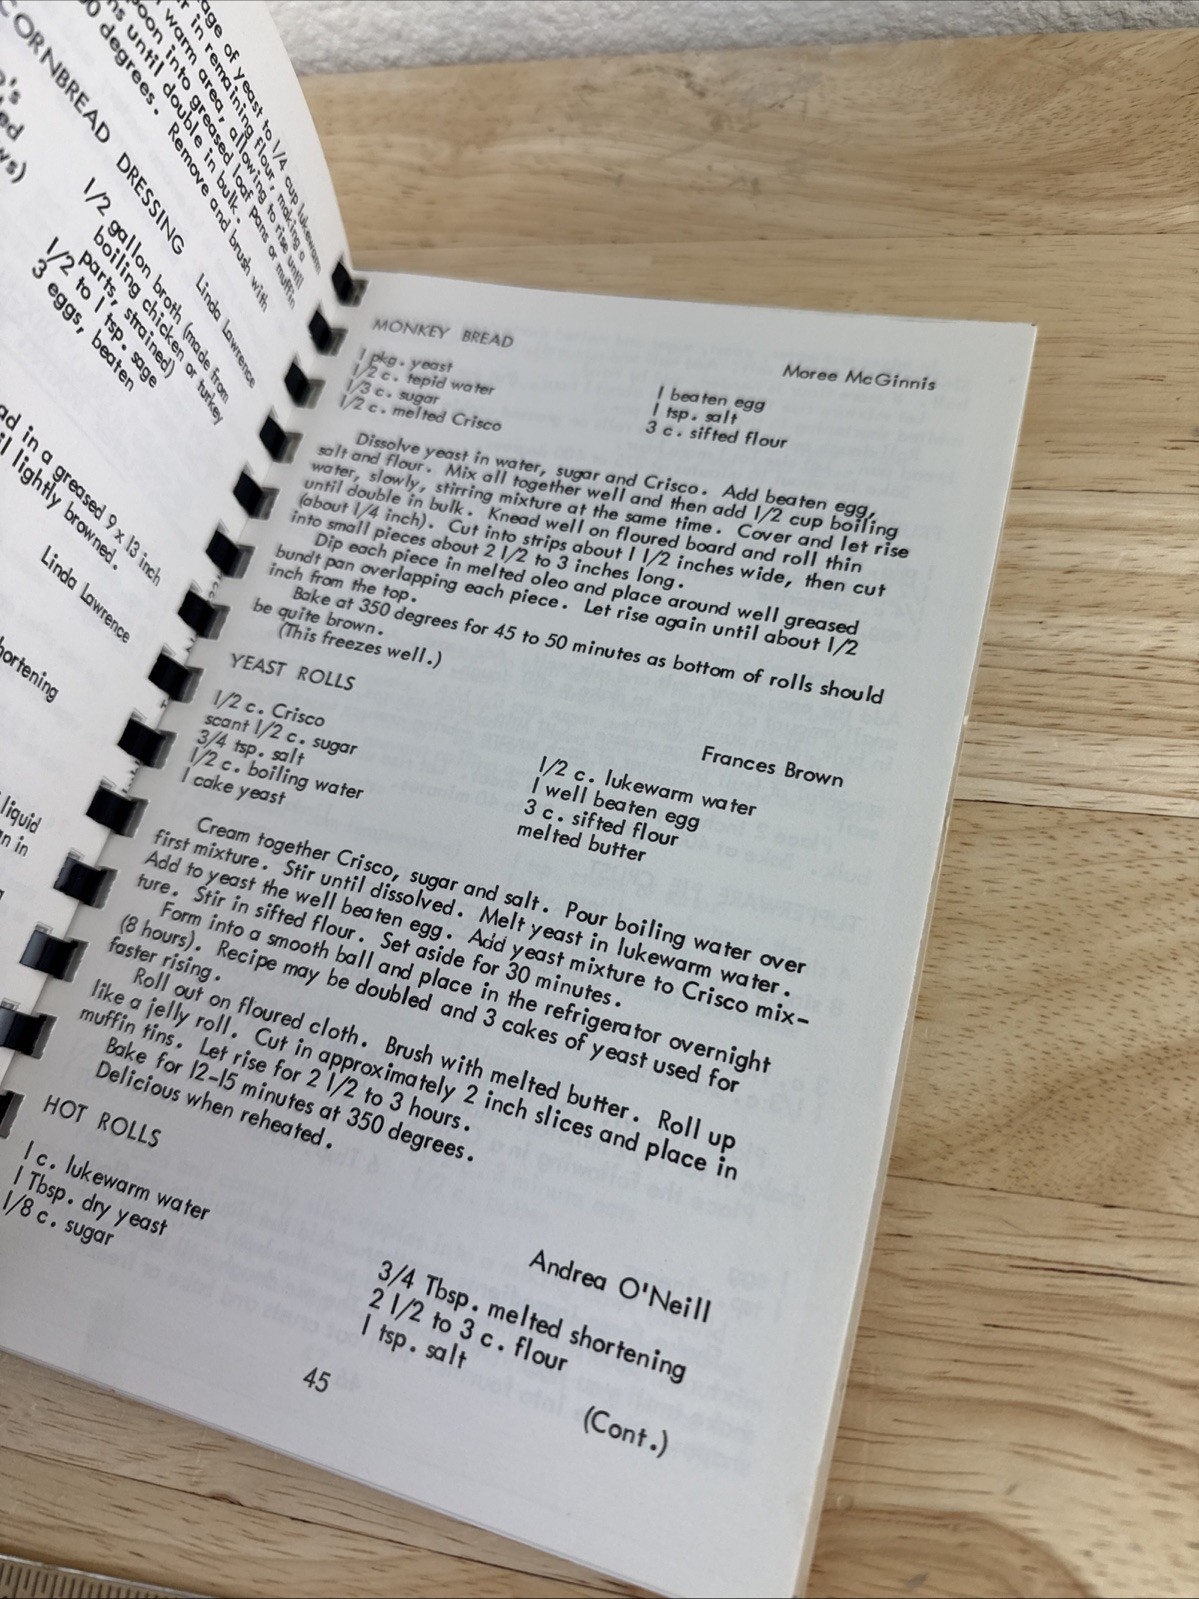 age of yeast to 1/4 cup lukewarm
r in remaining flour, making a
warm area, allowing to rise until
poon into greased loaf pans or muffin
ns until double in bulk.
degrees. Remove and brush with
CORNBREAD DRESSING
Linda Lawrence
1/2 gallon broth (made from
boiling chicken or turkey
parts, strained)
1/2 to 1 tsp. sage
3 eggs, beaten
ad in a greased 9 x 13 inch
il lightly browned.
Linda Lawrence
hortening
liquid
an in
MONKEY BREAD
Moree McGinnis
1 pkg. yeast
1/2 c. tepid water
1/3 c. sugar
1/2 c. melted Crisco
1 beaten egg
1 tsp. salt
3 c. sifted flour
Dissolve yeast in water, sugar and Crisco. Add beaten egg,
salt and flour. Mix all together well and then add 1/2 cup boiling
water, slowly, stirring mixture at the same time. Cover and let rise
until double in bulk. Knead well on floured board and roll thin
(about 1/4 inch). Cut into strips about 1 1/2 inches wide, then cut
into small pieces about 2 1/2 to 3 inches long.
Dip each piece in melted oleo and place around well greased
bundt pan overlapping each piece. Let rise again until about 1/2
inch from the top.
Bake at 350 degrees for 45 to 50 minutes as bottom of rolls should
be quite brown.
(This freezes well.)
YEAST ROLLS
Frances Brown
1/2 c. Crisco
scant 1/2 c. sugar
3/4 tsp. salt
1/2 c. boiling water
1 cake yeast
1/2 c. lukewarm water
1 well beaten egg
3 c. sifted flour
melted butter
Cream together Crisco, sugar and salt. Pour boiling water over
first mixture. Stir until dissolved. Melt yeast in lukewarm water.
Add to yeast the well beaten egg. Add yeast mixture to Crisco mix-
ture. Stir in sifted flour. Set aside for 30 minutes.
Form into a smooth ball and place in the refrigerator overnight
(8 hours). Recipe may be doubled and 3 cakes of yeast used for
faster rising.
Roll out on floured cloth. Brush with melted butter. Roll up
like a jelly roll. Cut in approximately 2 inch slices and place in
muffin tins. Let rise for 2 1/2 to 3 hours.
Bake for 12-15 minutes at 350 degrees.
Delicious when reheated.
HOT ROLLS
Andrea O'Neill
1 c. lukewarm water
1 Tbsp. dry yeast
1/8 c. sugar
3/4 Tbsp. melted shortening
2 1/2 to 3 c. flour
1 tsp. salt
45
(Cont.)